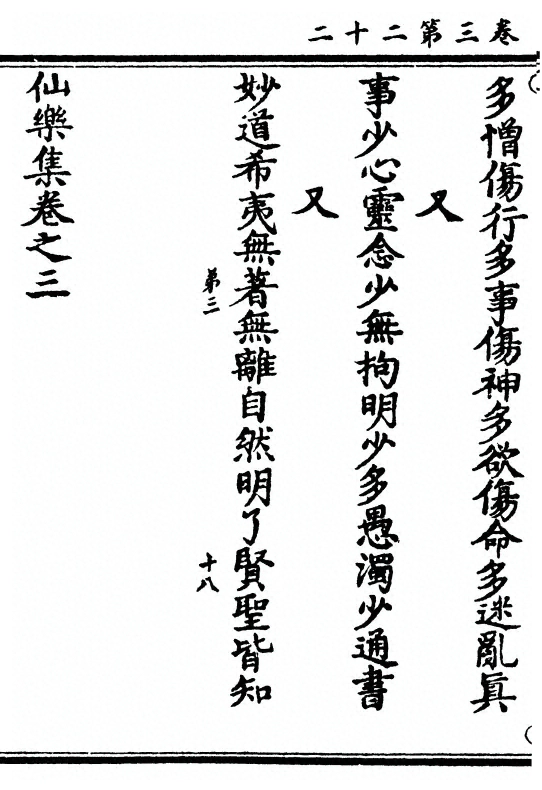 卷三第二十二
多憎傷行多事傷神多欲傷命多迷亂真
又
事少心靈念少無拘明少多愚濁少通書
又
妙道希夷無著無離自然明了賢聖皆知
第三
十八
仙樂集卷之三